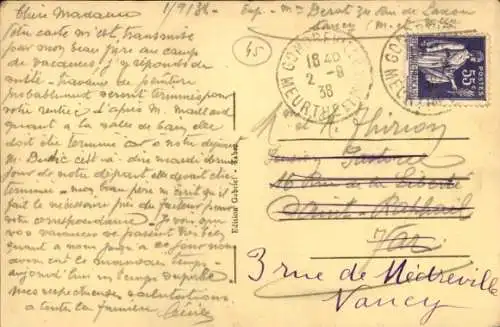 Chère Madame 1/9/38 - Exp. - Mme Derat 70 rue de Saxon
Nancy (M. et Mlle)
Votre carte m'est transmise
par mon beau père au camp
de vacances. J'y réponds de
suite. travaux de peinture
probablement seront terminés pour
votre rentrée d'après M. Maillard
quant à la salle de bain, elle
doit être terminée car à notre
M. c'est à dire mardi dernier
jour de notre départ elle devait être
terminée - mon beau père m'écrit qu'il
fait le nécessaire près du facteur pour
votre correspondance. Je vois que
vos vacances se passent très bien
quant à nous jusqu'à ce jour nous
avons eu le mauvais temps -
aujourd'hui un temps superbe
Mes respectueuses salutations
à toute la famille
Cécile
Edition Gabriel - Nancy
45
GONDREVILLE
18 40
2 - 9
38
MEURTHE
POSTES
55c
M et Mme Thirion
Pension Pastorel
16 Rue de la Liberté
Saint-Raphaël
Var
3 rue de Médreville
Nancy